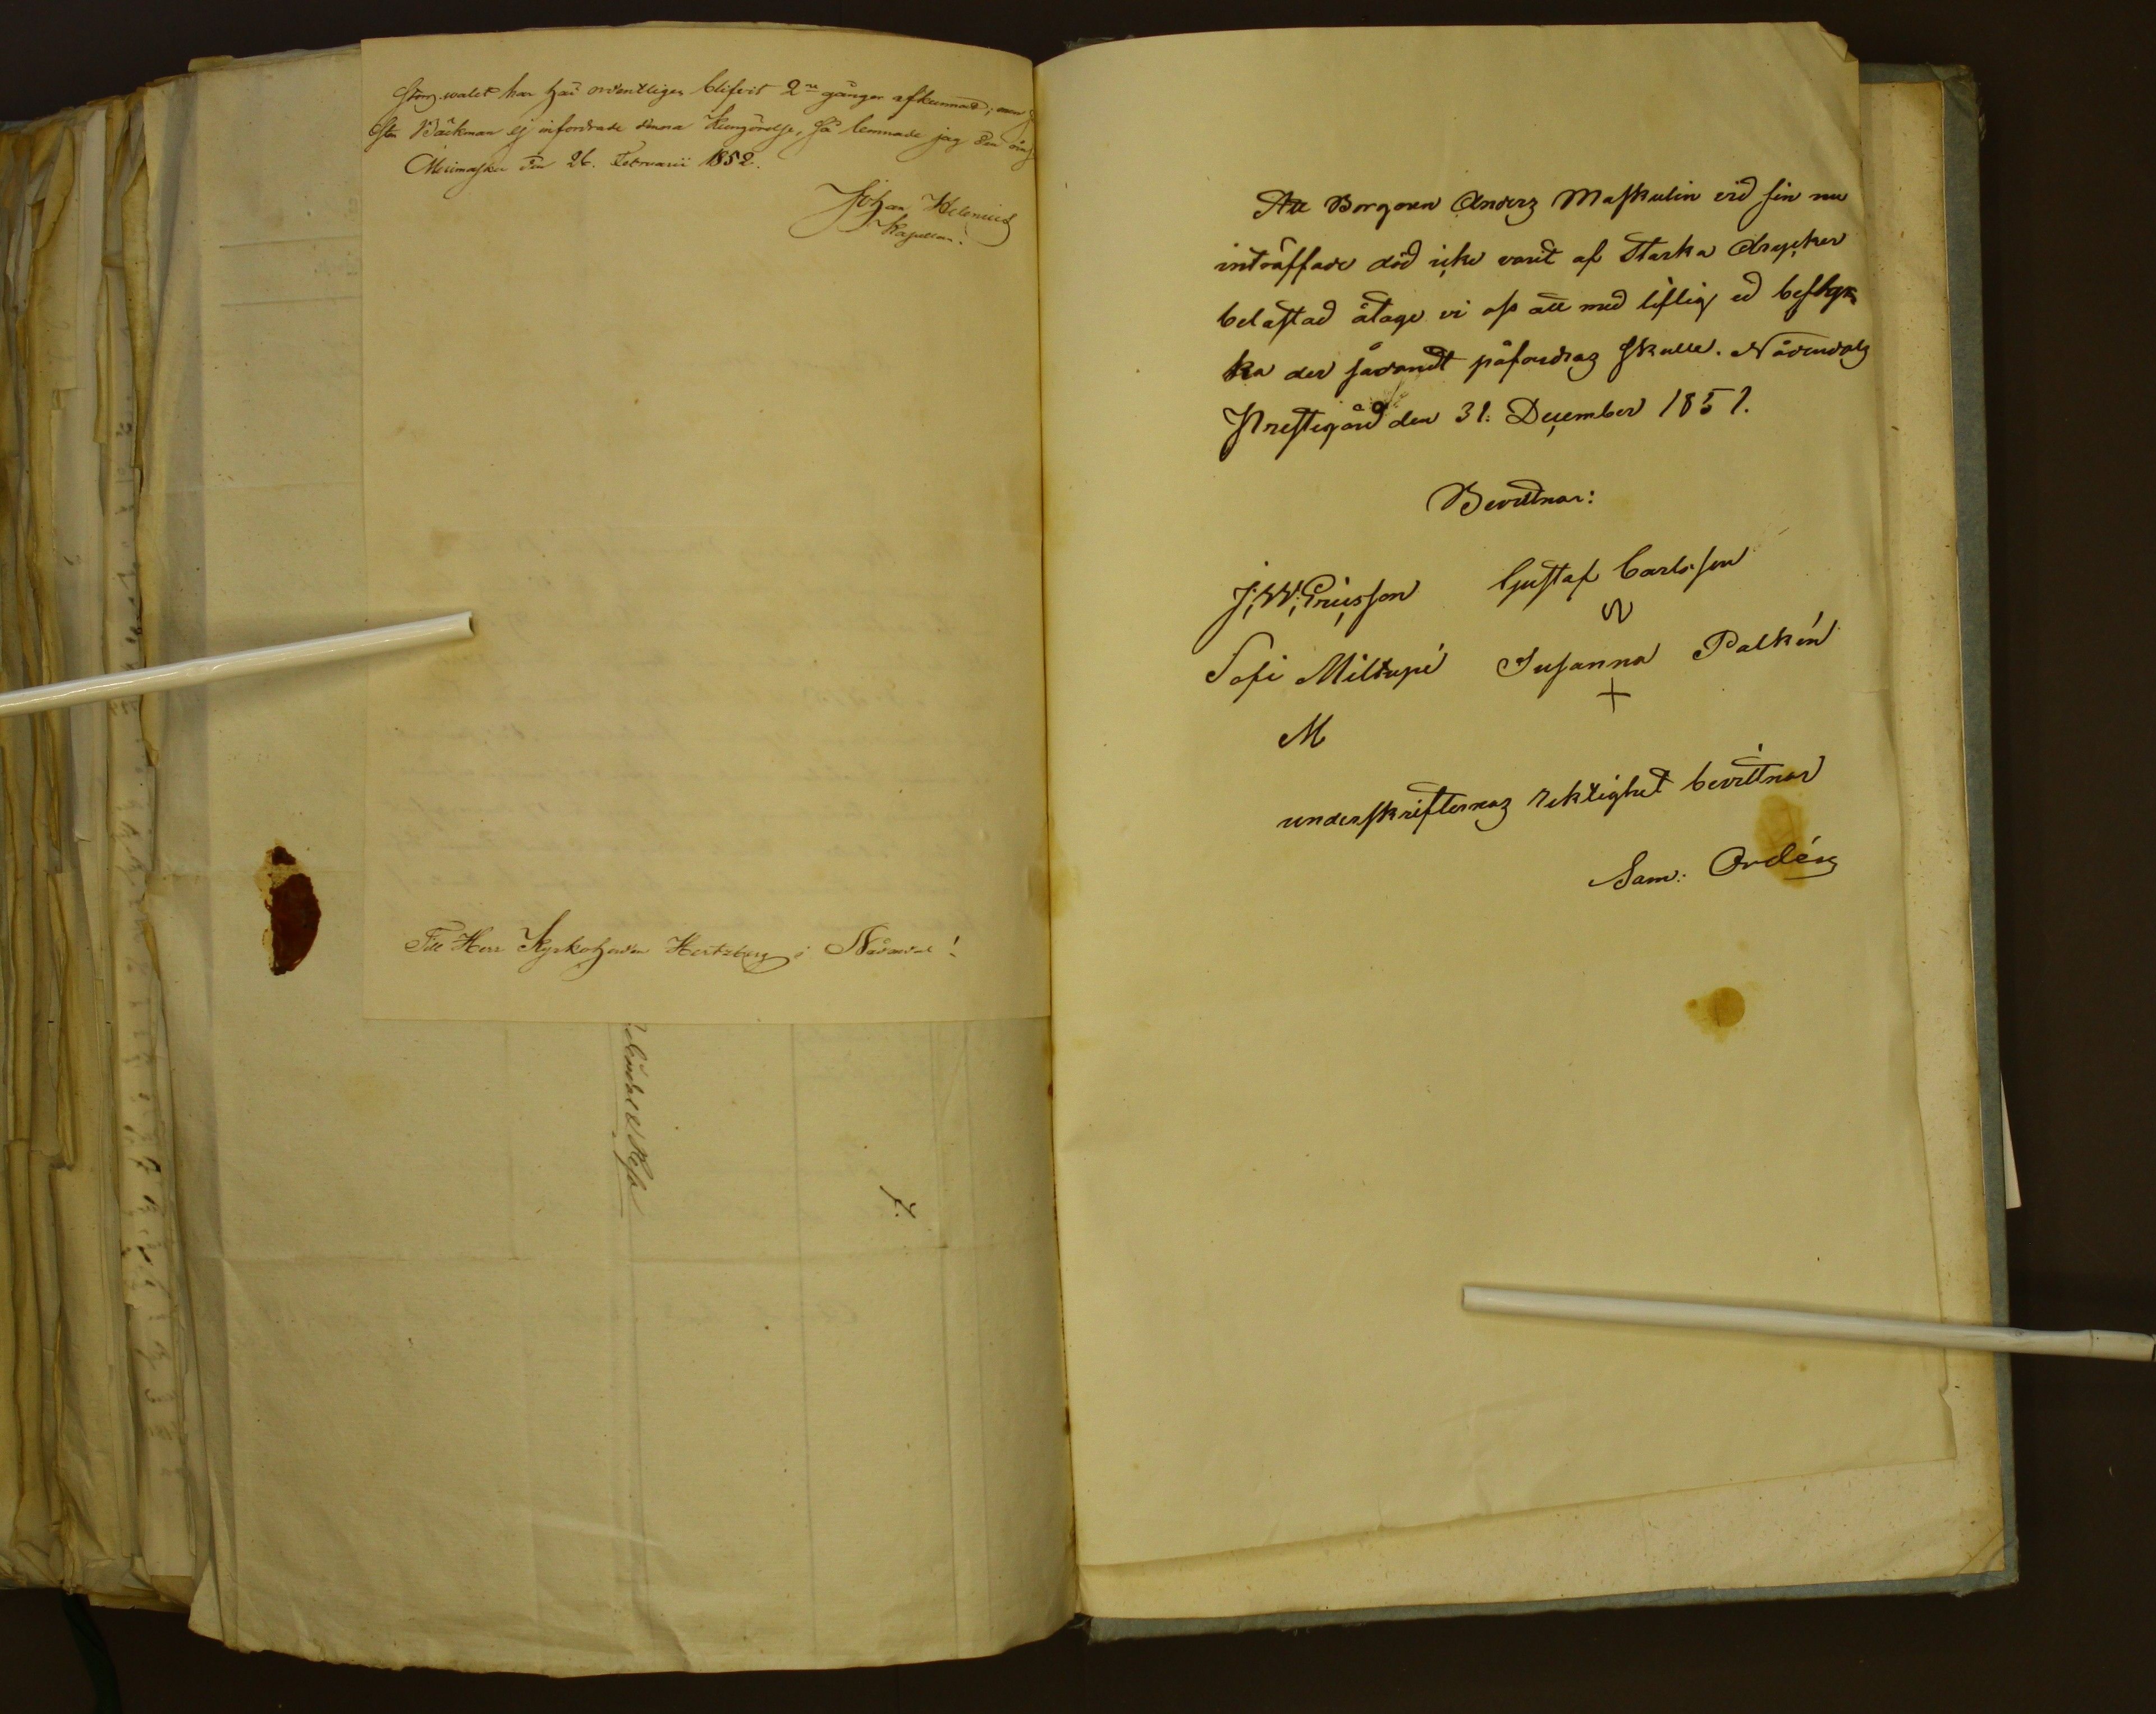 har här ordentligen blifvit 2ne gånger afkunnad; men
Bäckman ej infordrade denna Kungörelse, så lemnade jag den
Merimasku den 26. Februarii 1852.
Johan Helenius
Kapellan.
Till Herr Kyrkoherden Hertzberg i Nådendal!
7.
Att Borgaren Anders Maskulin vid sin nu
inträffade död icke varit af Starka drycker
belastad åtage vi oss att med liflig ed bestyr
ka der sådant påfordras skulle. Nådendals
Prestegård den 31. December 1851.
Bevittnar:
J. W. Ericsson Gustaf Carlsson
Sofi Susanna Palkén
+
M
underskrifternas rektighet bevittnar
Sam: Ordén